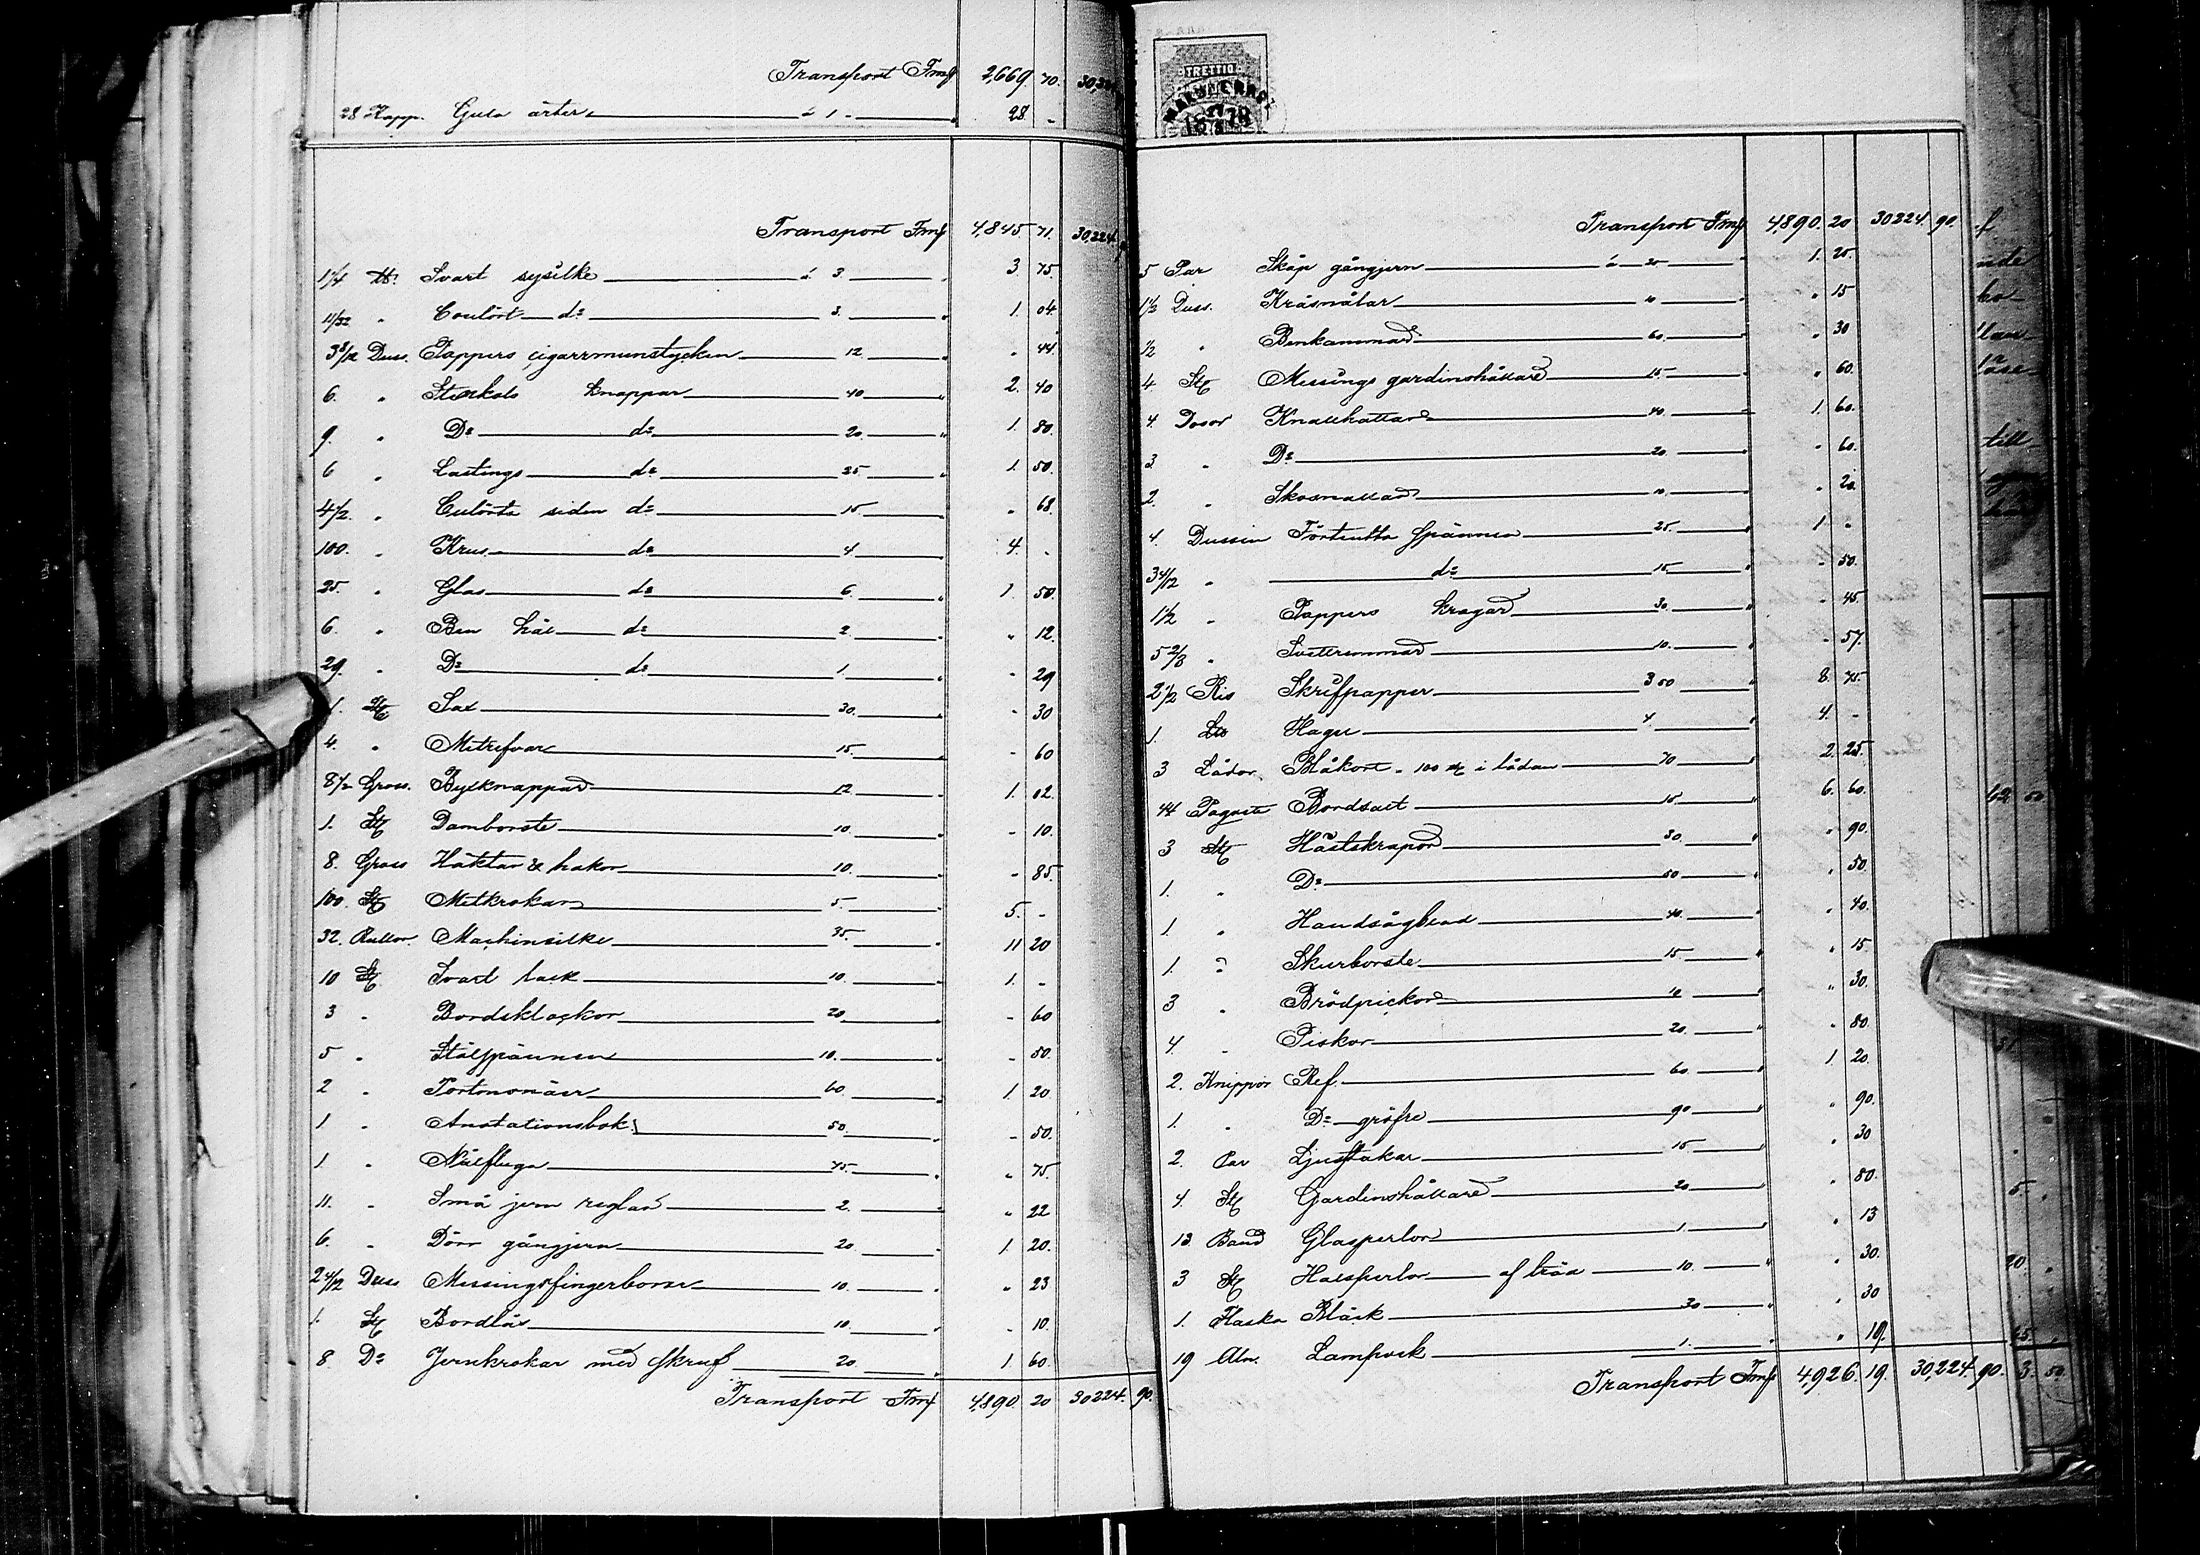 Transport Fmk 2,669 70. 30,224
28 Kapp. Gula ärter à 1 - 28 -
Transport Fmk 4,845 71. 30,224
1 1/4 ℔ Svart sysilke à 3 3. 75.
11/32 " Coulört do 3. 1. 04.
3 8/12 Duss. Pappers cigarrmunstycken 12 " 44
6. " Stenkols knappar 40 2. 40
9. " Do do 20. 1. 80.
6 " Lastings do 25 1. 50.
4 1/2 " Culörta siden do 15 " 68.
100. " Krus do 4 4. -
25. " Glas do 6. 1. 50.
6. " Ben hål do 2 " 12.
29. " Do do 1 - 29
1. St Sax 30. - 30
4. " Metrefvar 15. - 60
8 1/2 Gross. Byxknappar 12 1. 02.
1. St Damborste 10. - 10.
8. Gross Häktor & hakor 10. - 85.
100. St Metkrokar 5. 5. -
32. Rullor. Machinsilke 35. 11 20
10 St Svart lack 10. 1. -
3 " Bordsklockor 20 - 60
5 " Stålspännen 10. - 50.
2 " Portmonäer 60 1. 20
1 " Anotationsbok 50. - 50.
1 " 75. " 75.
11. " Små jern reglar 2. " 22
6. " Dörr gångjern 20 1. 20.
2 4/12 Duss Messingsfingerborar 10. " 23
1. St Bordlås 10. - 10.
8 Do Jernkrokar med skruf 20. 1. 60.
Transport Fmk 4,890. 20 30224. 90.
TRETTIO
1878
Transport Fmk 4,890. 20 30224. 90.
5 Par Skåp gångjern à 25 1. 25.
1 1/2 Duss. Kråsnålar 10 " 15
1/2 " Benkammar 60 " 30
4 St Messings gardinshållare 15 " 60.
4. Dosor Knallhattar 40. 1. 60.
3 " Do 20. " 60.
2. " 10. " 20.
4. Dussin Förtenta spännen 25. 1 "
3 4/12 " do 15. " 50.
1 1/2 " Pappers kragar 30. " 45.
5 2/3 " 10. " 57.
2 1/2 Ris Skrifpapper 3 50 8. 75.
1. Hagel 4 4. -
3 Lådor Blåkort - 100 st i lådan 70 2. 25.
44 Paquete Bordsalt 15 6. 60.
3 St Hästskrapor 30. " 90.
1. " Do 50 " 50.
1. " Handsågblad 40. " 40.
1. " Skurborste 15. " 15.
3 " Brödpickor 10 " 30.
4. " Piskor 20. " 80
2. Knippor Ref. 60. 1. 20.
1. " Do gröfre 90 " 90.
2. Par Ljusstakar 15 " 30
4. St Gardinshållare 20 " 80.
13. Band Glasperlor 1. " 13
3 St Halsperlor af träd 10. " 30.
1. Flaska Bläck 30 " 30
19 Aln. Lampvek 1. " 19.
Transport Fmk 4,926. 19. 30,224. 90.
till
62 50
5. "
20. "
25. "
3. 50